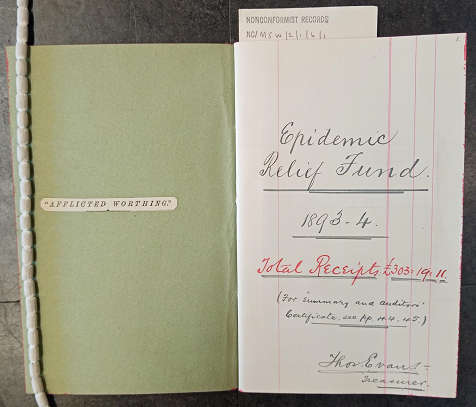 NONCONFORMIST RECORDS
NC/MSW/2/1/6/1
"AFFLICTED WORTHING."
Epidemic
Relief Fund.
1893-4.
Total Receipts, £303-19.11.
(For summary and auditors'
Certificate, see pp. 44.45.)
Thos Evans
Treasurer.